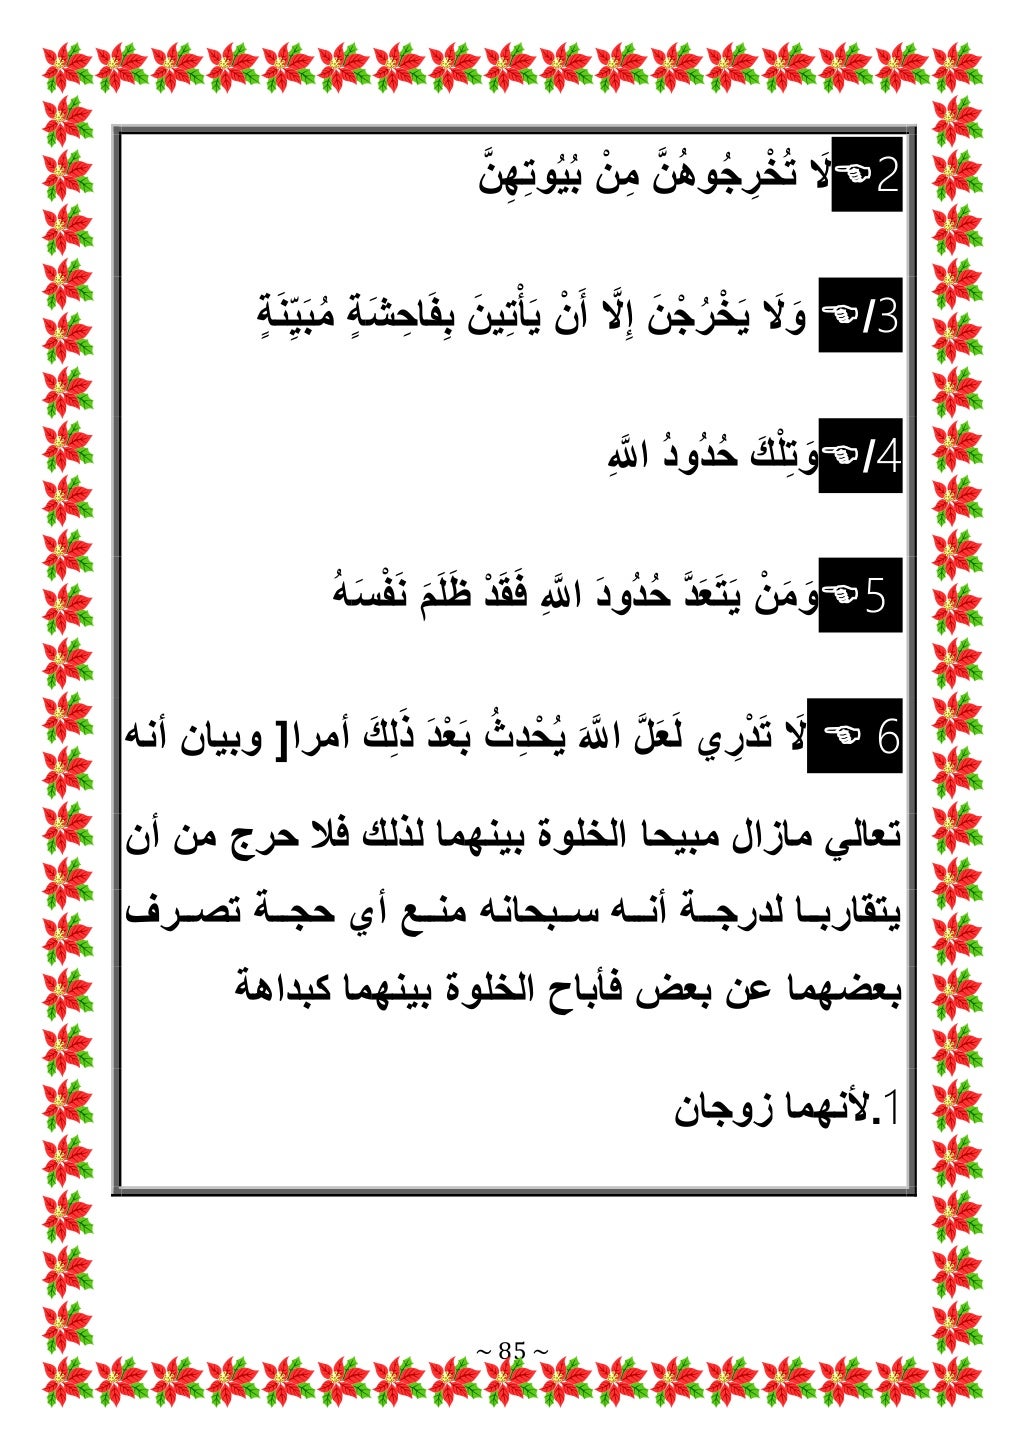 2☜لَا تُخْرِجُوهُنَّ مِنْ بُيُوتِهِنَّ
3/☜ وَلَا يَخْرُجْنَ إِلَّا أَنْ يَأْتِينَ بِفَاحِشَةٍ مُبَيِّنَةٍ
4/☜وَتِلْكَ حُدُودُ اللَّهِ
5 ☜وَمَنْ يَتَعَدَّ حُدُودَ اللَّهِ فَقَدْ ظَلَمَ نَفْسَهُ
6 ☜ لَا تَدْرِي لَعَلَّ اللَّهَ يُحْدِثُ بَعْدَ ذَلِكَ أمرا[ وبيان أنه
تعالي مازال مبيحا الخلوة بينهما لذلك فلا حرج من أن
يتقاربـا لدرجـة أنـه سـبحانه منـع أي حجـة تصـرف
بعضهما عن بعض فأباح الخلوة بينهما كبداهة
1.لأنهما زوجان
~ 85 ~